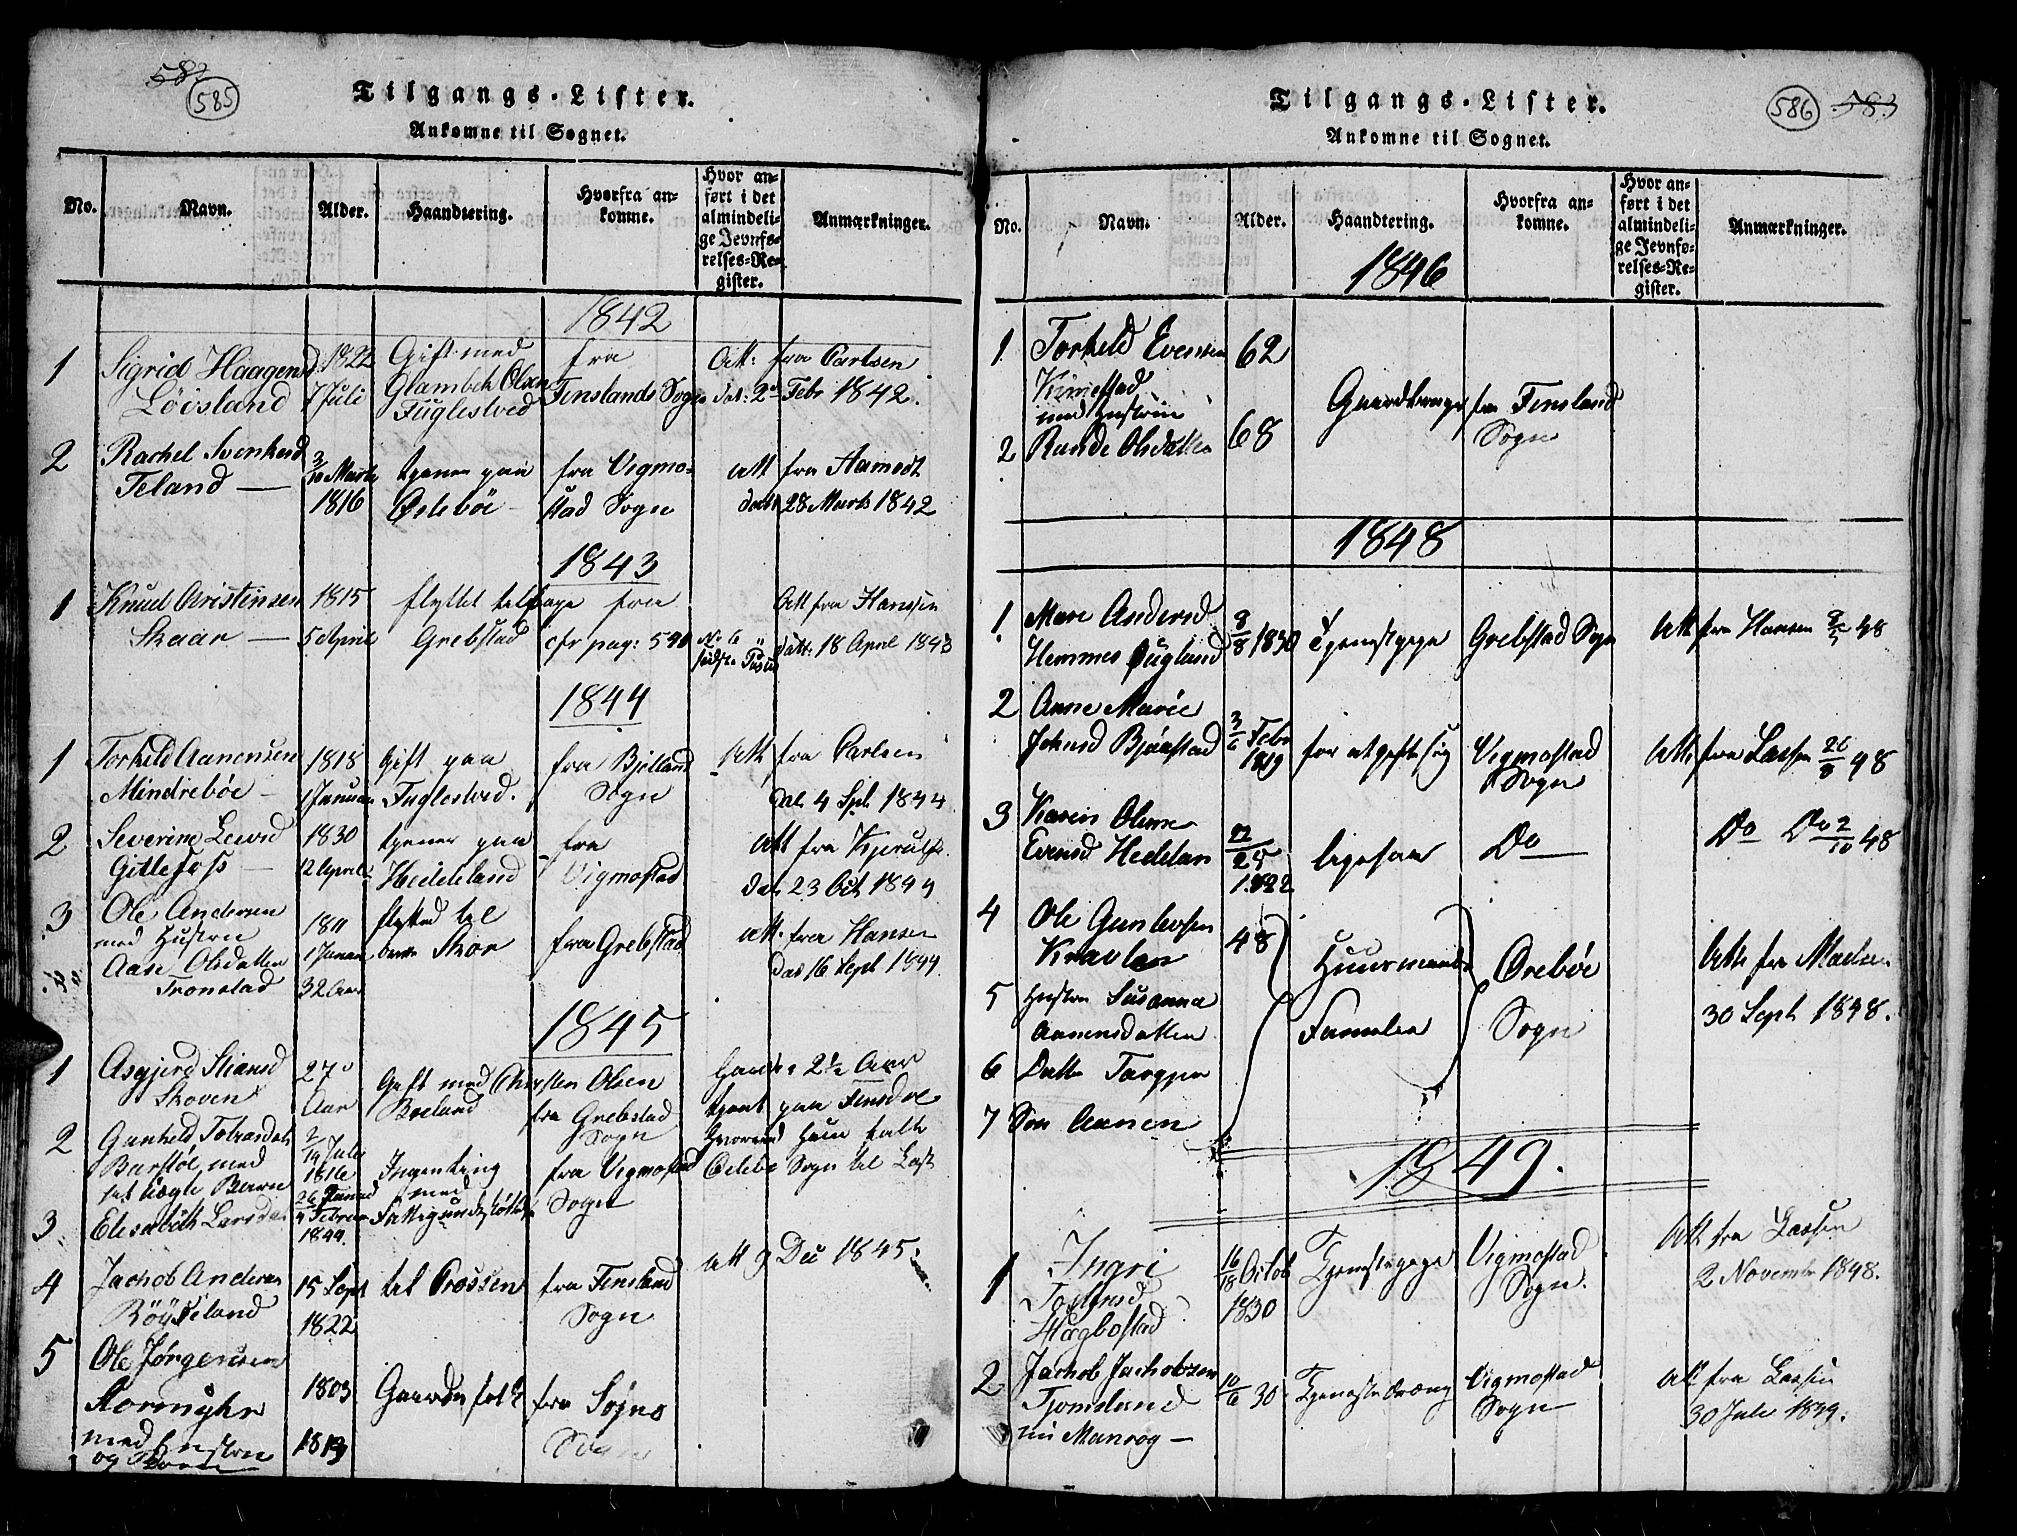 582
585
Tilgangs-Lister.
Ankomne til Sognet.
No. Navn. Alder. Haandtering. Hvorfra ankomne. Hvor anført i det almindelige Jevnførelses-Register. Anmærkninger.
1842
1 Sigrid Haagensd 1822 Gift med fra Att: fra Carlsen
Löisland 7 Juli Glambek Olsen Finslands Sogn dat: 2den Febr 1842.
Fuglestved
2 Rachel Svenkesd
Teland — 10 Marts tjener paa fra Vigmo- Att fra Aamodt
1816 Ølebö stad Sogn dat 28 Marts 1842
1843
1 Knud Christensen 1815 flyttet tilbage fra Att fra Hanssen
Skaar — 5 April Grebstad cfr pag: 590 No 6 datt: 18 April 1843
1844
1 Torkeld Aanensen 1818 Gift paa fra Bjelland Att fra Carlsen
Mindreböe — 1 Januar Fuglestved. Sogn dat 4 Spt 1844
2 Severine Leevsd 1830 tjener paa fra Att fra Kjerulf
Gitlefoss — 12 April Heddeland Vigmostad dat 23 Oct 1844
3 Ole Andersen 1811 flytted til
med Hustru 1 Januar Skor fra Grebstad Att. fra Hansen
Aase Olsdatter dat 16 Sept 1844.
Tronstad 32 Aar
1845
1 Asgjerd Stiansd 27 Gift med Christen Olsen 2½ Aar
Skoven Aar Boeland fra Grebstad tjent paa
Sogn hvorved Hun
2 Gunheld Tobiasdat 14 Juli
Barstöl med 1816 Ingenting fra Vigmostad Sogn til Last
uægte Barn med Sogn
3 Elisabeth Larsdat Februar Fattigunderstöttelse
1844.
4 Jachob Andersen 15 Sept til Crossen fra Finsland att 9 Dec 1845.
Röyseland 1822 Sogn
5 Ole Jörgensen
1803 Gaardsfolk fra Søgne
med Hustru 1819 Sogn
og Börn
586 583
Tilgangs-Lister.
Ankomne til Sognet.
No. Navn. Alder. Haandtering. Hvorfra ankomne. Hvor anført i det almindelige Jevnførelses-Register. Anmærkninger.
1846
1 Torkeld Evensen 62
med Hustrue Gaardbruger fra Finsland
2 Olsdatter 68 Sogn
1848
1 Mare Andersd 8/8 1830 Tjenestpige Grebstad Sogn Att fra Hansen 48
Hemmes Øugland
2 Anne Marie
Johnsd Bjåstad Febr 1819 for at gifte sig Vigmostad Sogn Att: fra Lassen 26/8 48
3 Karen Oline
Evensd Heddeland 25 1822 ligesaa Do Do Do 2/10 48
4 Ole Gunlevsen 48
Huusmands Orebøe Att fra Madsen
5 Hustru Susanna
Aanensdatter Familie Sogn 30 Sept 1848.
6 Datte
7 Søn Aanen
1849.
1 Ingri 16/18 Octob Tjenestepige Vigmostad Att fra Lassen
1830 Sogn. 2 November 1848.
Hægbostad
2 Jachob Jachobsen 10/6 30 Tjenestedræng Vigmostad Att fra Lassen
Tjomsland Sogn 30 Juli 1849.